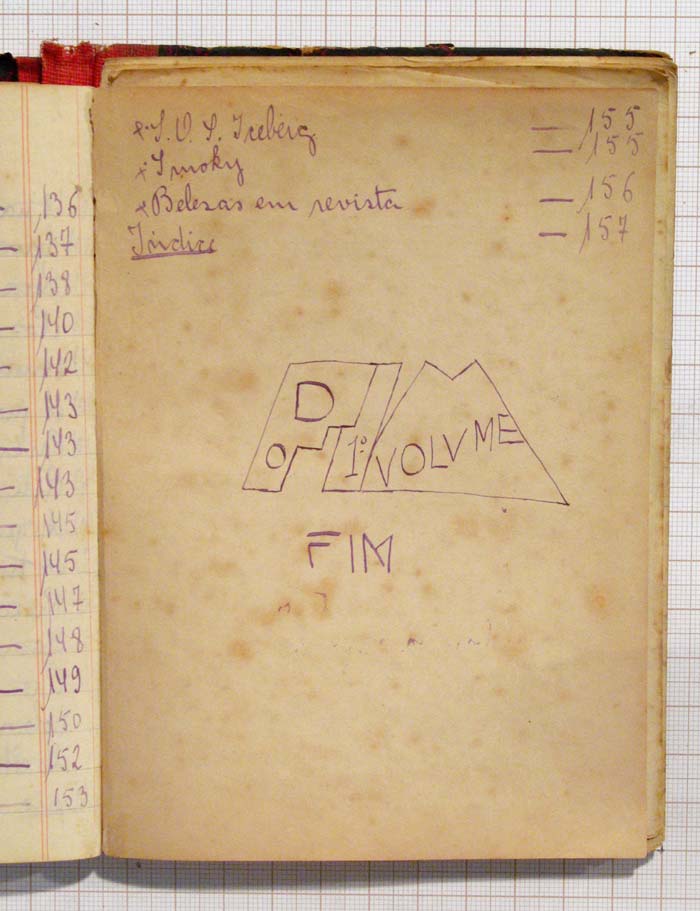 136
137
138
140
142
143
143
143
145
145
147
148
149
150
152
153
x S. O. S. Iceberg — 155
x Smoky — 155
x Belezas em revista — 156
Índice — 157
D
O 1º VOLVME
FIM